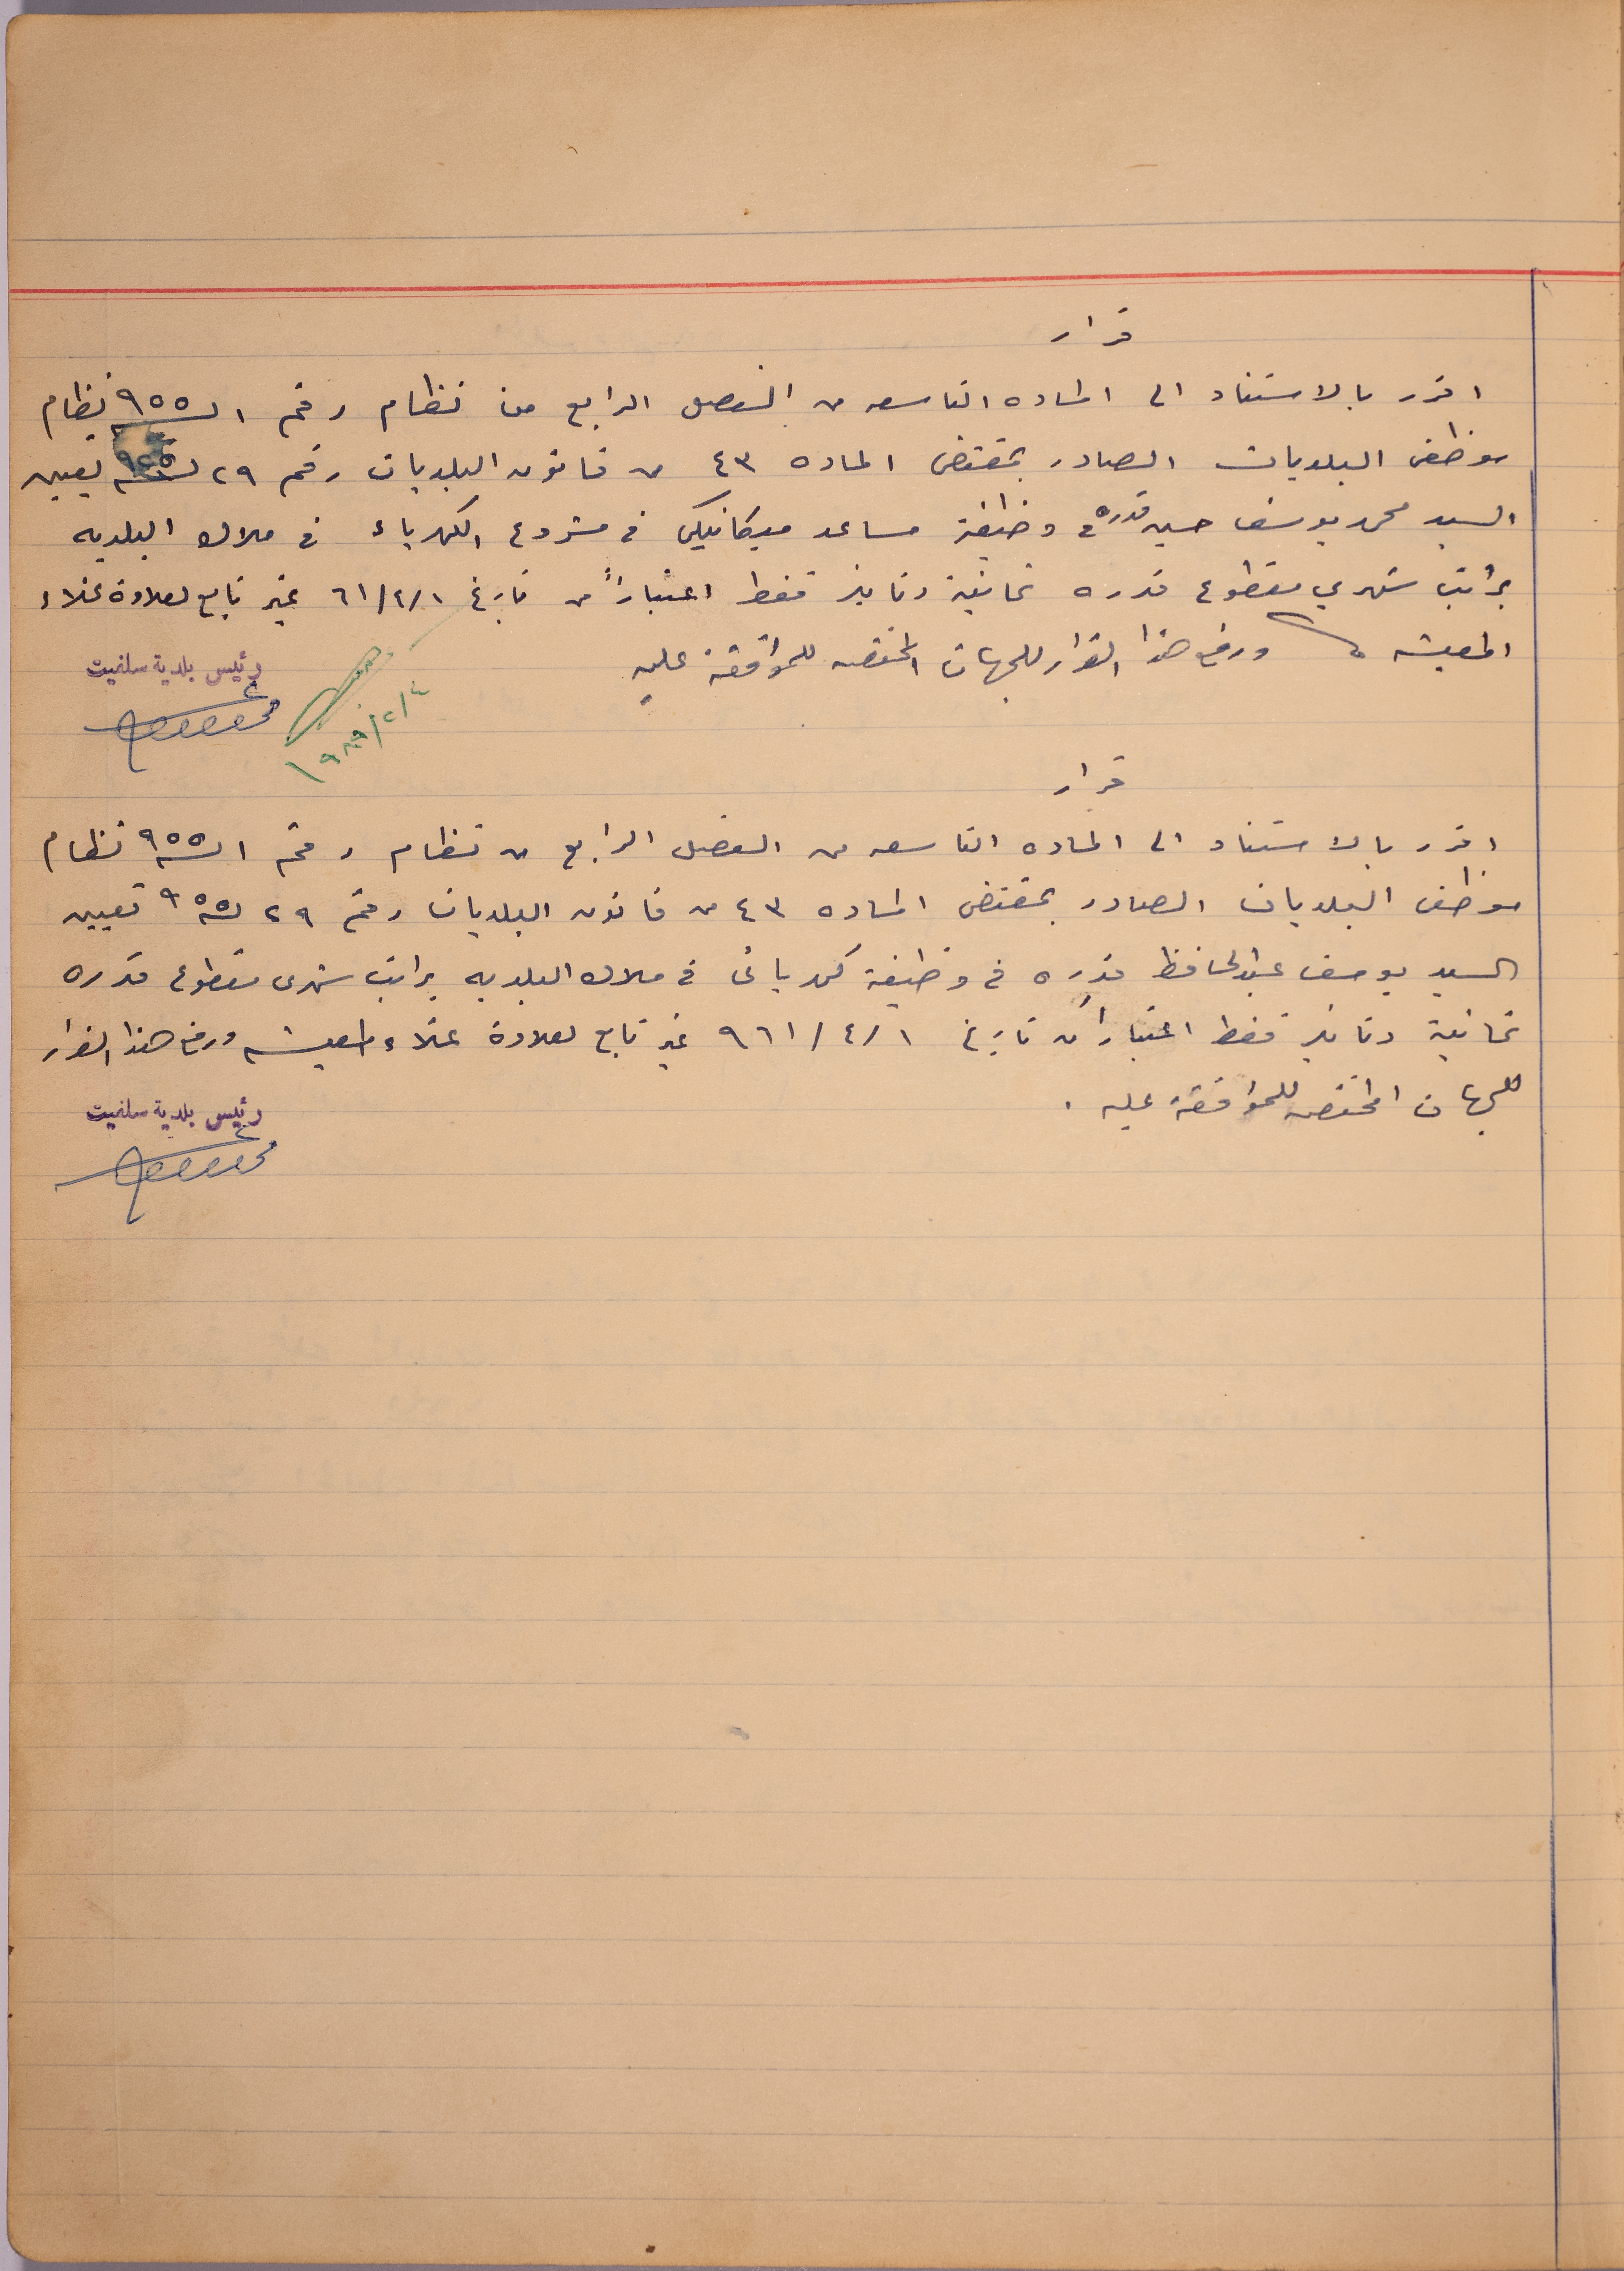 قرار
اقرر بالاستناد الى الماده التاسعه من الفصل الرابع من نظام رقم ١ لسنة ٩٥٥ نظام
موظفي البلديات الصادر بمقتضى الماده ٤٣ من قانون البلديات رقم ٢٩ لسنة ٩٥٥ تعيين
السيد محمد يوسف حسين قدره في وظيفة مساعد ميكانيكي في مشروع الكهرباء في ملاك البلديه
براتب شهري مقطوع قدره ثمانية دنانير فقط اعتباراً من تاريخ ٦١/٤/١ غير تابع لعلاوة غلاء
المعيشه ورفع هذا القرار للجهات المختصه للموافقة عليه
رئيس بلدية سلفيت
١٩٨٩/٢/٤
قرار
اقرر بالاستناد الى الماده التاسعه من الفصل الرابع من نظام رقم ١ لسنة ٩٥٥ نظام
موظفي البلديات الصادر بمقتضى الماده ٤٣ من قانون البلديات رقم ٢٩ لسنة ٩٥٥ تعيين
السيد يوسف عبدالحافظ قدره في وظيفة كهربائي في ملاك البلديه براتب شهري مقطوع قدره
ثمانية دنانير فقط اعتباراً من تاريخ ٩٦١/٤/١ غير تابع لعلاوة غلاء المعيشه ورفع هذا القرار
للجهات المختصه للموافقة عليه .
رئيس بلدية سلفيت